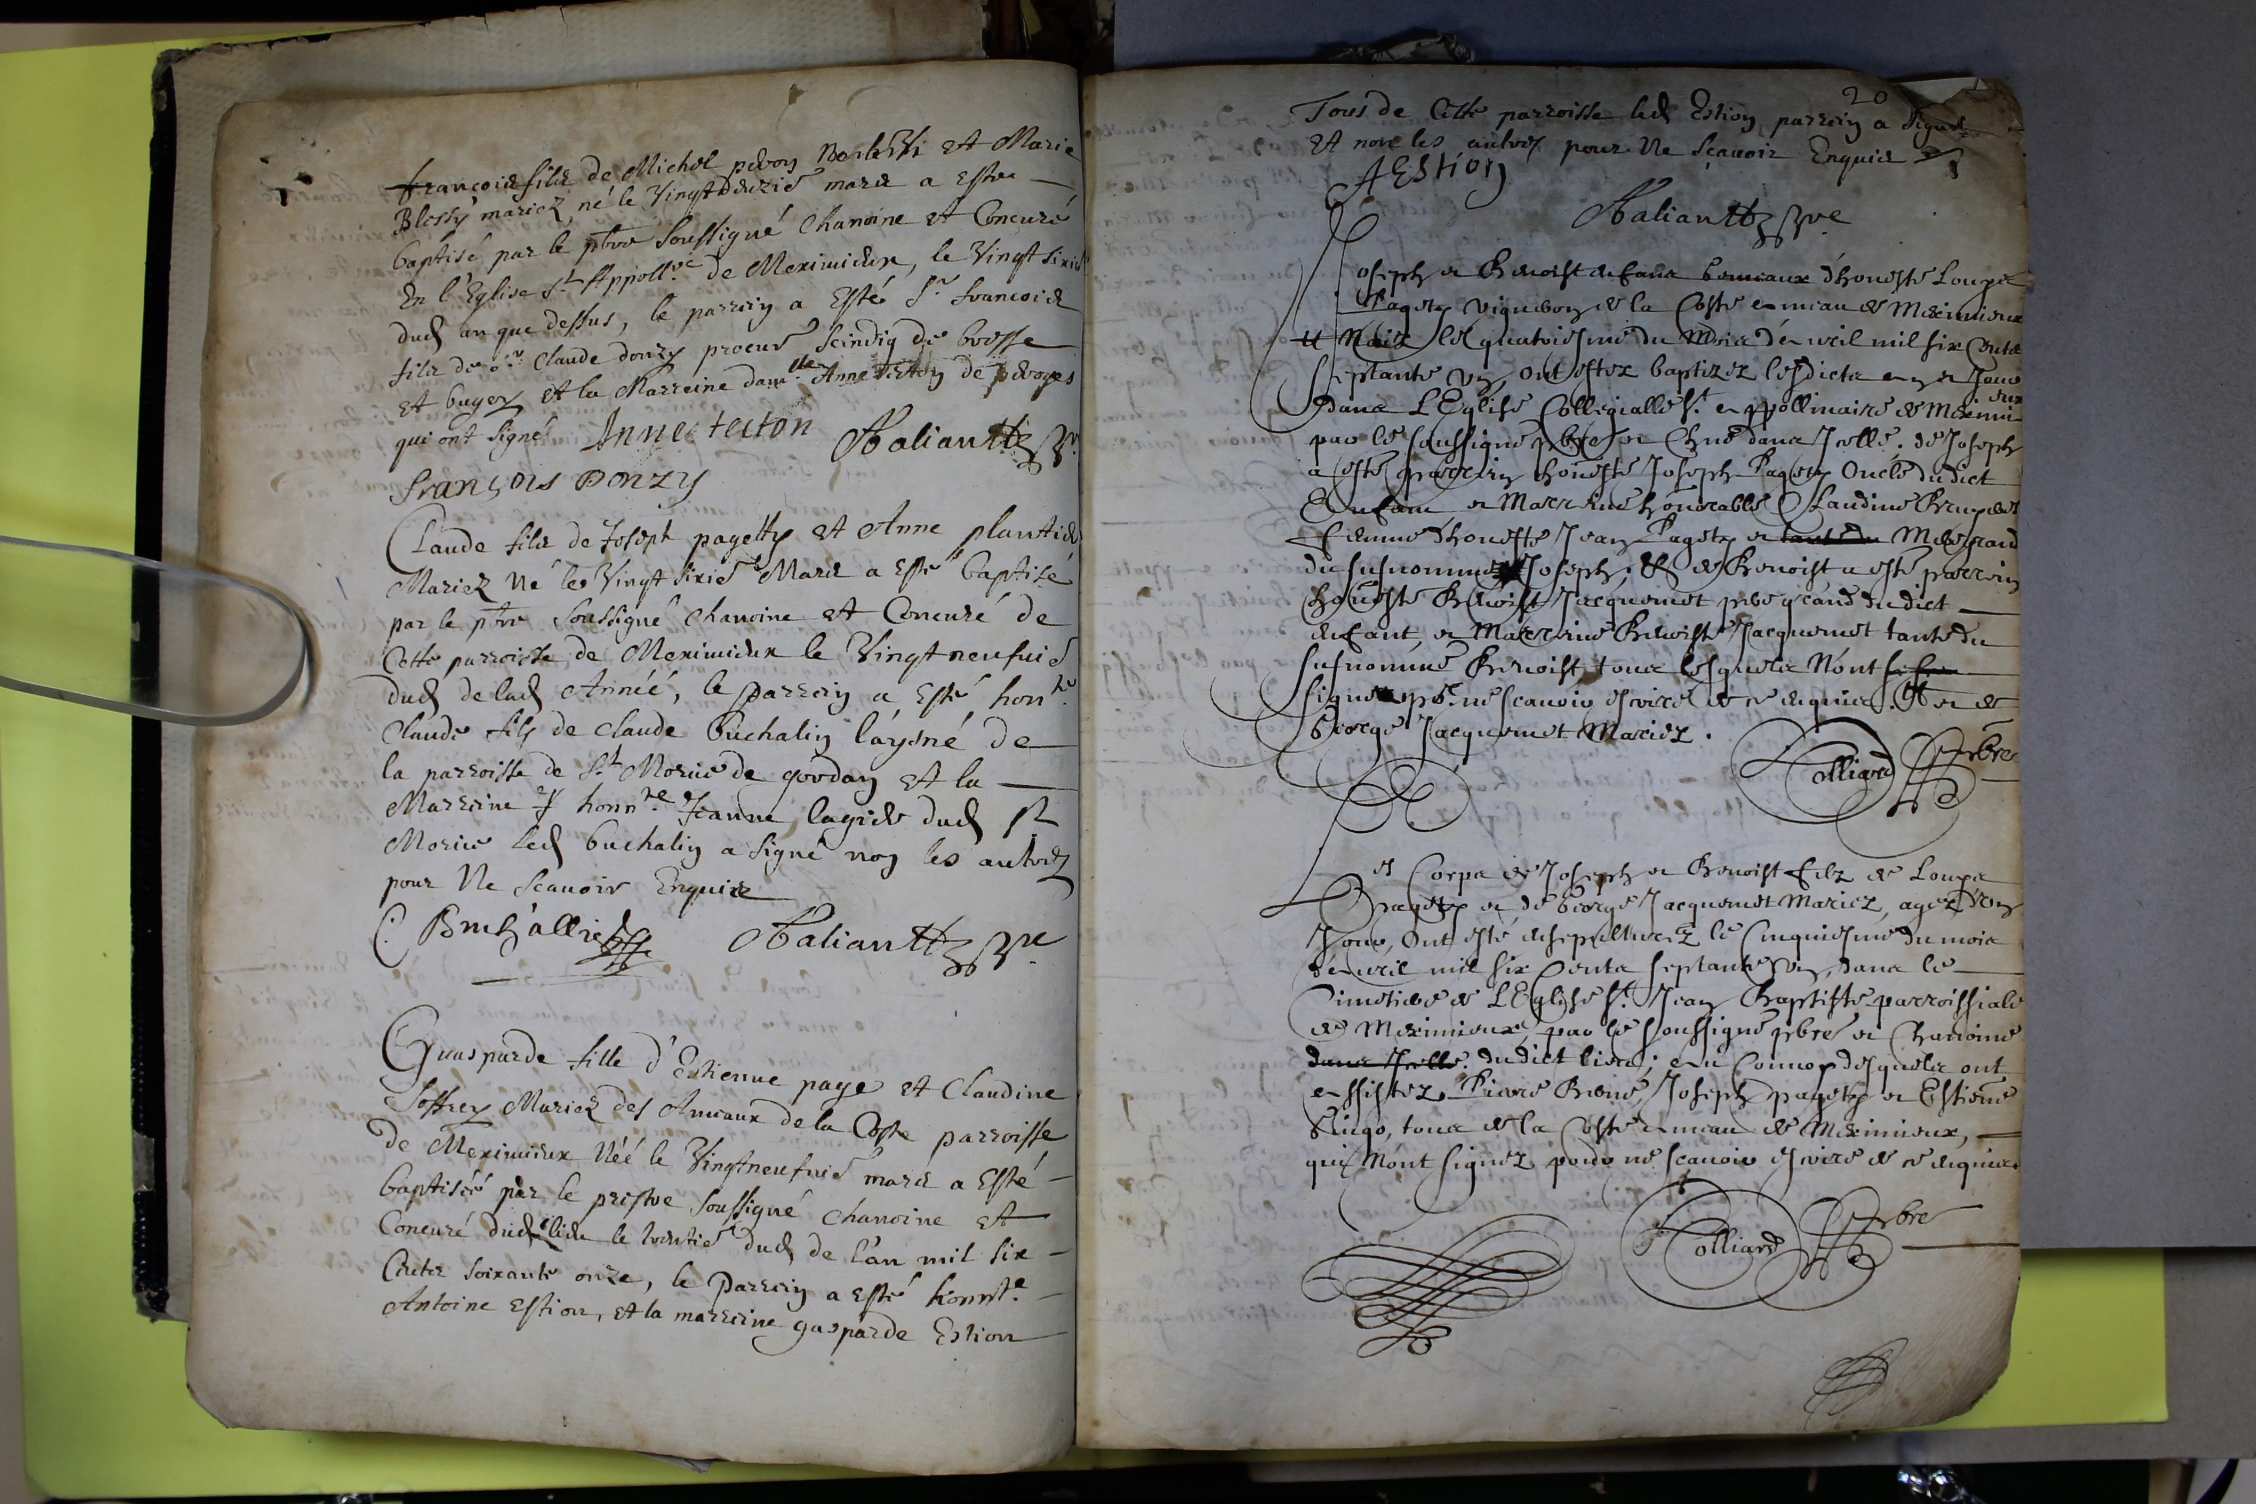 françois fils de Michel peron et Marie
Blessy mariez, né le Vingt deuzie mars a Esté
baptisé par le pbre soussigné Chanoine et Concuré
En l'Eglise St Appollre de Meximieux, le Vingt sixie
dud an que dessus, le parrein a Esté Sr francois
fils de sr Claude donzy procur scindiq de bresse
et bugey et la Marreine damlle Anne de peroges
qui ont signé Anne tecton
françois Donzy
Claude fils de Joseph pagetty et Anne plantier
Mariez Né le Vingt sixie Mars a Esté baptisé
par le pbre soussigné Chanoine et Concuré de
Cette parroisse de Meximieux le Vingt neufuie
dud de lad Année, le parrein a Esté honte
Claude fils de Claude buchalin l'aysné de
la parroisse de St Morice de gourdan et la
Marreine honnte Jeanne dud St
Morice led buchalin a signé non les autres
pour Ne scauoir Enquis
Guasparde fille d'Estienne page et Claudine
Joffrey Mariez des Ameaux de la Coste parroisse
de Meximieux Née le Vingt neufuie mars a Esté
baptisée par le prestre soussigné Chanoine et
Concuré dud lieu le trentie dud de l'an mil six
Cents soixante onze, le Parrein a Esté honnte
Antoine Estion, et la marreine gasparde Estion
20
Tous de Cette parroisse led Estion parrein a signé
et non les autres pour Ne scauoir Enquis
A Estion
Joseph et Benoist enfans bemeaux d'honeste Loups
Pagetz vigneron de la Coste ameau de Meximieux
Nais le quatriesme du Mois d'auril mil six Cents
septante un, ont estez baptizez lesdicts an et Jour
dans L'Eglise Collegialle St appollinaire de Meximi
eux
par le soussigné pbre et Chne dans Jcelle. de Joseph
a esté parrein honeste Joseph Pagetz Oncle du dict
Enfant et Marrine honorable Claudine
femme d'honeste Jean Pagetz et tante du Meregrand
du susnommé Joseph; & de Benoist a esté parrein
honeste Benoist Jacquemet pere grand du dict
enfant, et Marrine Benoiste Jacquemet tante du
susnommé Benoist tous lesquels N'ont
signé pr ne scauoir escrire de ce enquis. & de
George Jacquemet Mariez.
Colliard pbre
Les Corps de Joseph et Benoist filz de Loups
Pagetz et de George Jacquemet Mariez, agez d'un
Jour, Ont esté ensepulturez le Cinquiesme du mois
d'auril mil six Cents septante un, dans le
Cimetiere de L'Eglise St Jean Baptiste parroissiale
de Meximieux, par le soussigné pbre et Chanoine
dans Jcelle. du dict lieu; au Conuoy desquels ont
assistez Pierre Joseph pagetz et Estienne
tous de la Coste ameau de Meximieux,
qui N'ont signez pour ne scauoir escrire de ce enquis
Colliard pbre